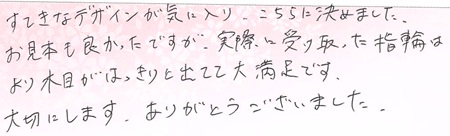 すてきなデザインが気に入り、こちらに決めました。
お見本も良かったですが、実際に受け取った指輪は
より木目がはっきりと出てて大満足です。
大切にします。ありがとうございました。